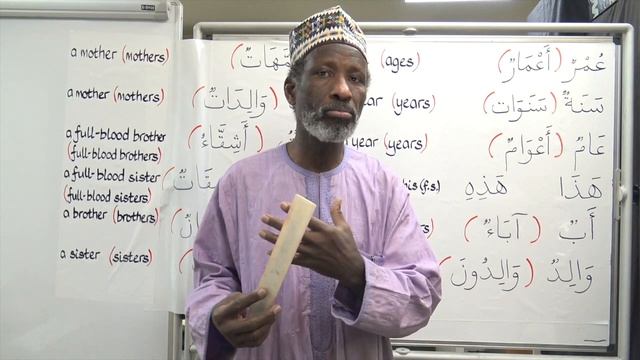 a mother (mothers)
a mother (mothers)
a full-blood brother
(full-blood brothers)
a full-blood sister
(full-blood sisters)
a brother (brothers)
a sister (sisters)
(وَالِدَاتٌ
(أَشِقَّاءُ)
(ages)
(years)
year (years)
(f.s.)
عُمْرٌ (أَعْمَارٌ)
سَنَةٌ (سَنَوَاتٌ)
عَامٌ (أَعْوَامٌ)
هَذَا هَذِهِ
أَبٌ (آبَاءٌ)
وَالِدٌ (وَالِدُونَ)